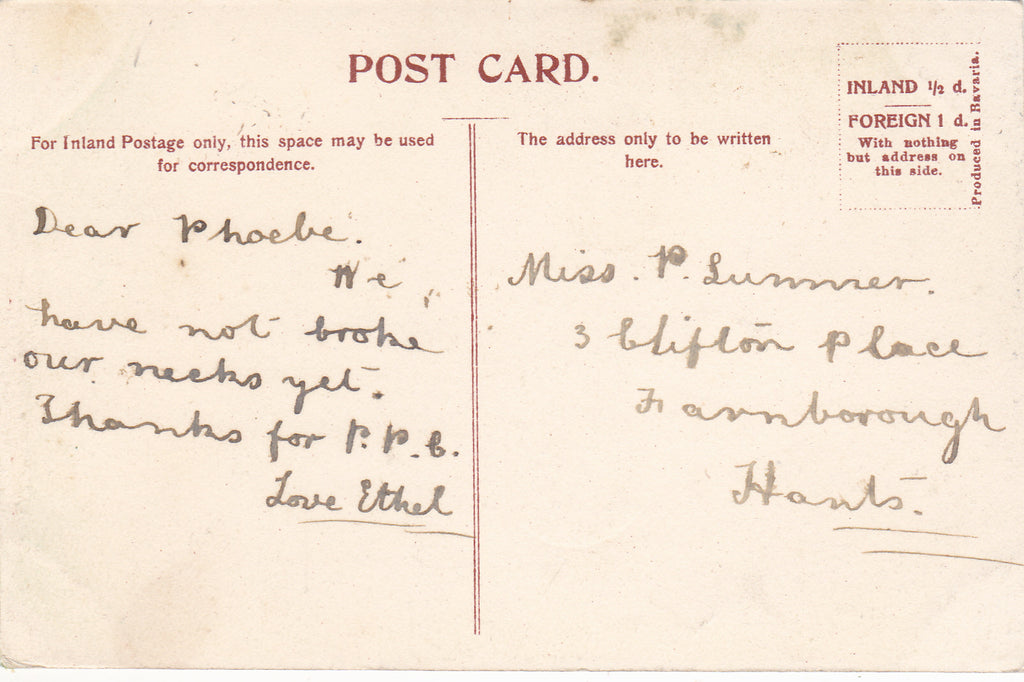 POST CARD.
For Inland Postage only, this space may be used
for correspondence.
Dear Phoebe.
We
have not broke
our necks yet.
Thanks for P.P.C.
Love Ethel
The address only to be written
here.
INLAND ½ d.
FOREIGN 1 d.
With nothing
but address on
this side.
Produced in Bavaria.
Miss. P. Summer.
3 Clifton Place
Farnborough
Hants.